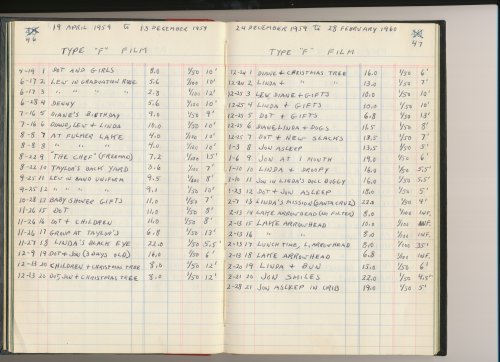 46
19 APRIL 1959 to 13 DECEMBER 1959
TYPE "F" FILM
4-19 1 DOT AND GIRLS 8.0 1/50 10'
6-17 2 LEW IN GRADUATION ROBE 5.6 1/100 10'
6-17 3 " " " " 2.8 1/100 12'
6-28 4 DENNY 5.6 1/100 10'
7-16 5 DIANE'S BIRTHDAY 9.0 1/50 9'
7-16 6 DOWD, LEW & LINDA 10.0 1/50 10'
8-8 7 AT FULMER LAKE 4.0 1/100 10'
8-8 8 " " " 4.0 1/100 10'
8-22 9 "THE CHEF" (FREEMAN) 7.2 1/100 15'
8-22 10 TAYLOR'S BACK YARD 3.6 1/100 7'
9-25 11 LEW IN BAND UNIFORM 9.5 8'
9-25 12 " " " " 9.0 1/50 10'
10-28 13 BABY SHOWER GIFTS 11.0 1/50 7'
11-26 15 DOT 11.0 1/50 8'
11-26 16 DOT & CHILDREN 11.0 1/50 8'
11-26 17 GROUP AT TAYLOR'S 6.8 1/50 13'
11-27 18 LINDA'S BLACK EYE 22.0 1/50 5.5'
12-9 19 DOT & JON (3 DAYS OLD) 16.0 1/50 6'
12-13 20 CHILDREN & CHRISTMAS TREE 8.0 1/50 12'
12-13 20 DOT, JON & CHRISTMAS TREE 8.0 1/50 12'
47
24 DECEMBER 1959 to 28 FEBRUARY 1960
TYPE "F" FILM
12-24 1 DIANE & CHRISTMAS TREE 16.0 1/50 6'
12-24 2 LINDA & " " 13.0 1/50 7'
12-25 3 LEW, DIANE & GIFTS 10.0 1/50 10'
12-25 4 LINDA & GIFTS 10.0 1/50 10'
12-25 5 DOT & GIFTS 6.8 1/50 13'
12-25 6 DIANE, LINDA & DOGS 11.5 1/50 8'
12-25 7 DOT & NEW SLACKS 13.5 1/50 7'
1-3 8 JON ASLEEP 13.5 1/50 5'
1-6 9 JON AT 1 MONTH 19.0 1/50 6'
1-10 10 LINDA & DROOPY 16.0 1/50 5.5'
1-10 11 JON IN LINDA'S DOLL BUGGY 16.0 1/50 5.5'
1-23 12 DOT & JON ASLEEP 18.0 1/50 5'
2-7 13 LINDA'S MISSION (SANTA CRUZ) 22.0 1/50 4'
2-13 14 LAKE ARROWHEAD (NO FILTER) 8.0 1/100 INF.
2-13 15 LAKE ARROWHEAD 10.0 1/100 INF.
2-13 16 " " 8.0 1/100 INF.
2-13 17 LUNCH TIME, L. ARROWHEAD 8.0 1/100 35'
2-13 18 LAKE ARROWHEAD 6.8 1/100 INF.
2-20 19 LINDA & BUN 15.0 1/50 6'
2-21 20 JON SMILES 22.0 1/50 4.5'
2-28 21 JON ASLEEP IN CRIB 19.0 1/50 5'